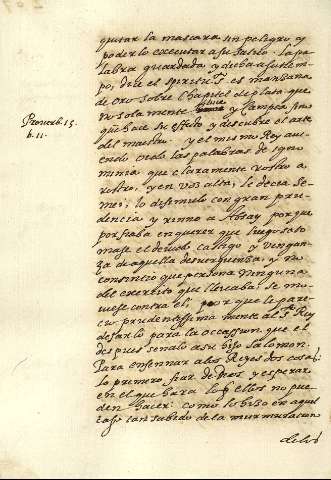 quitar la mascara sin peligro, y
poderlo executar a su salvo. la pa
labra guardada y dicha a su tiem
po, dice el spiritu S. es mançana
de oro sobre chapitel de plata que
no solamente luce y campea sino
que hace su effeto y descubre el arte
del maestro. y el mismo Rey avi
endo oydo las palabras de igno
minia que claramente rostro a
rostro, y en voz alta, le decia Se
mei; lo disimulo con gran pru
dencia y riño a Abisay porque
porfiaba en querer que luego se to
mase el devido castigo y vengan
ça de aquella desverguença, y no
consintio que persona ninguna
del exercito que llevaba se mo
viese contra el, porque le pare
cio prudentissima mente al S. Rey
dexarlo para la occassion que el
despues señalo a su hijo Salomon.
Para ensennar a los Reyes dos cosas,
lo primero, fiar de Dios y esperar
en el que hara lo q ellos no pue
den hacer: como lo hizo en aquel
caso con sabedo de la murmuracion
de los
Prouerb. 15.
b. 11.